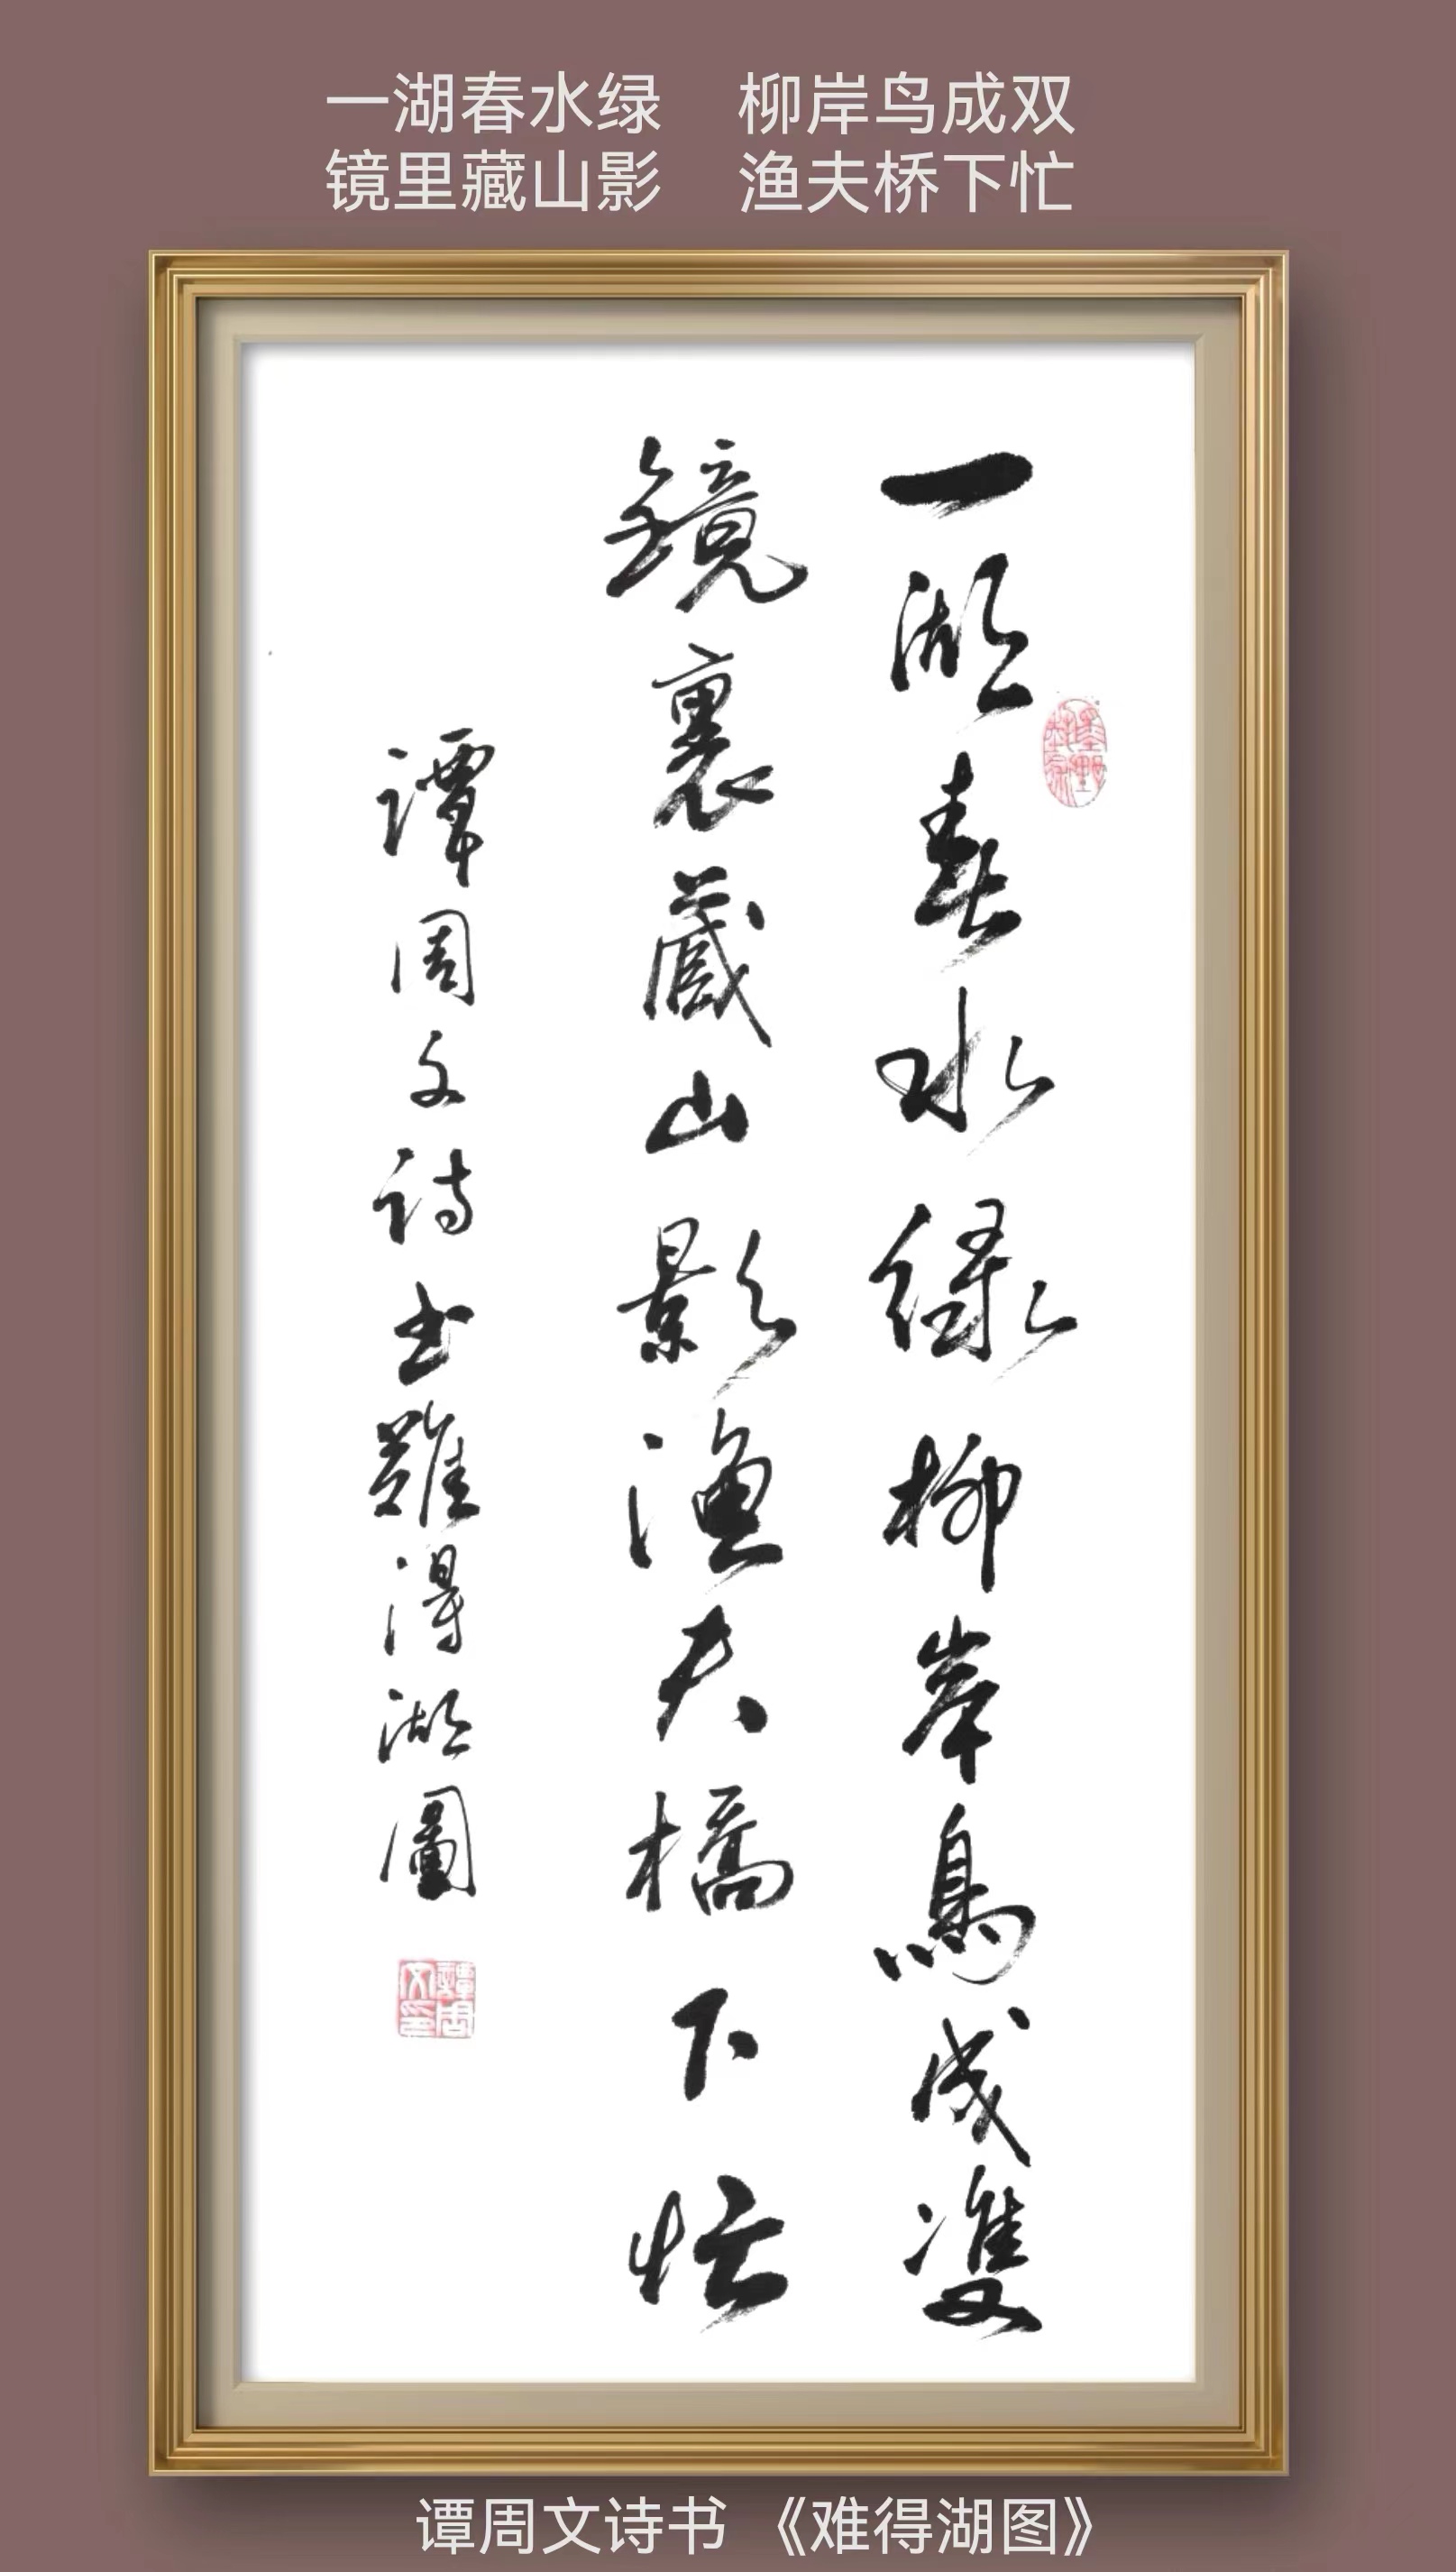 一湖春水绿 柳岸鸟成双
镜里藏山影 渔夫桥下忙
一湖春水緑柳岸鳥成雙
鏡裏藏山影漁夫橋下忙
谭周文诗书難得湖圖
譚周文印
谭周文诗书 《难得湖图》